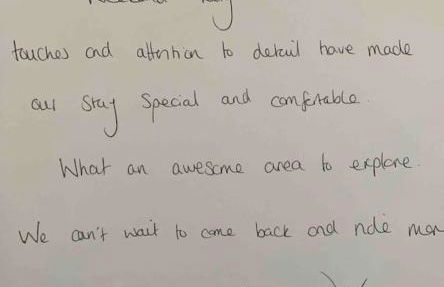 touches and attention to detail have made
our stay special and comfortable.
What an awesome area to explore.
We can't wait to come back and ride